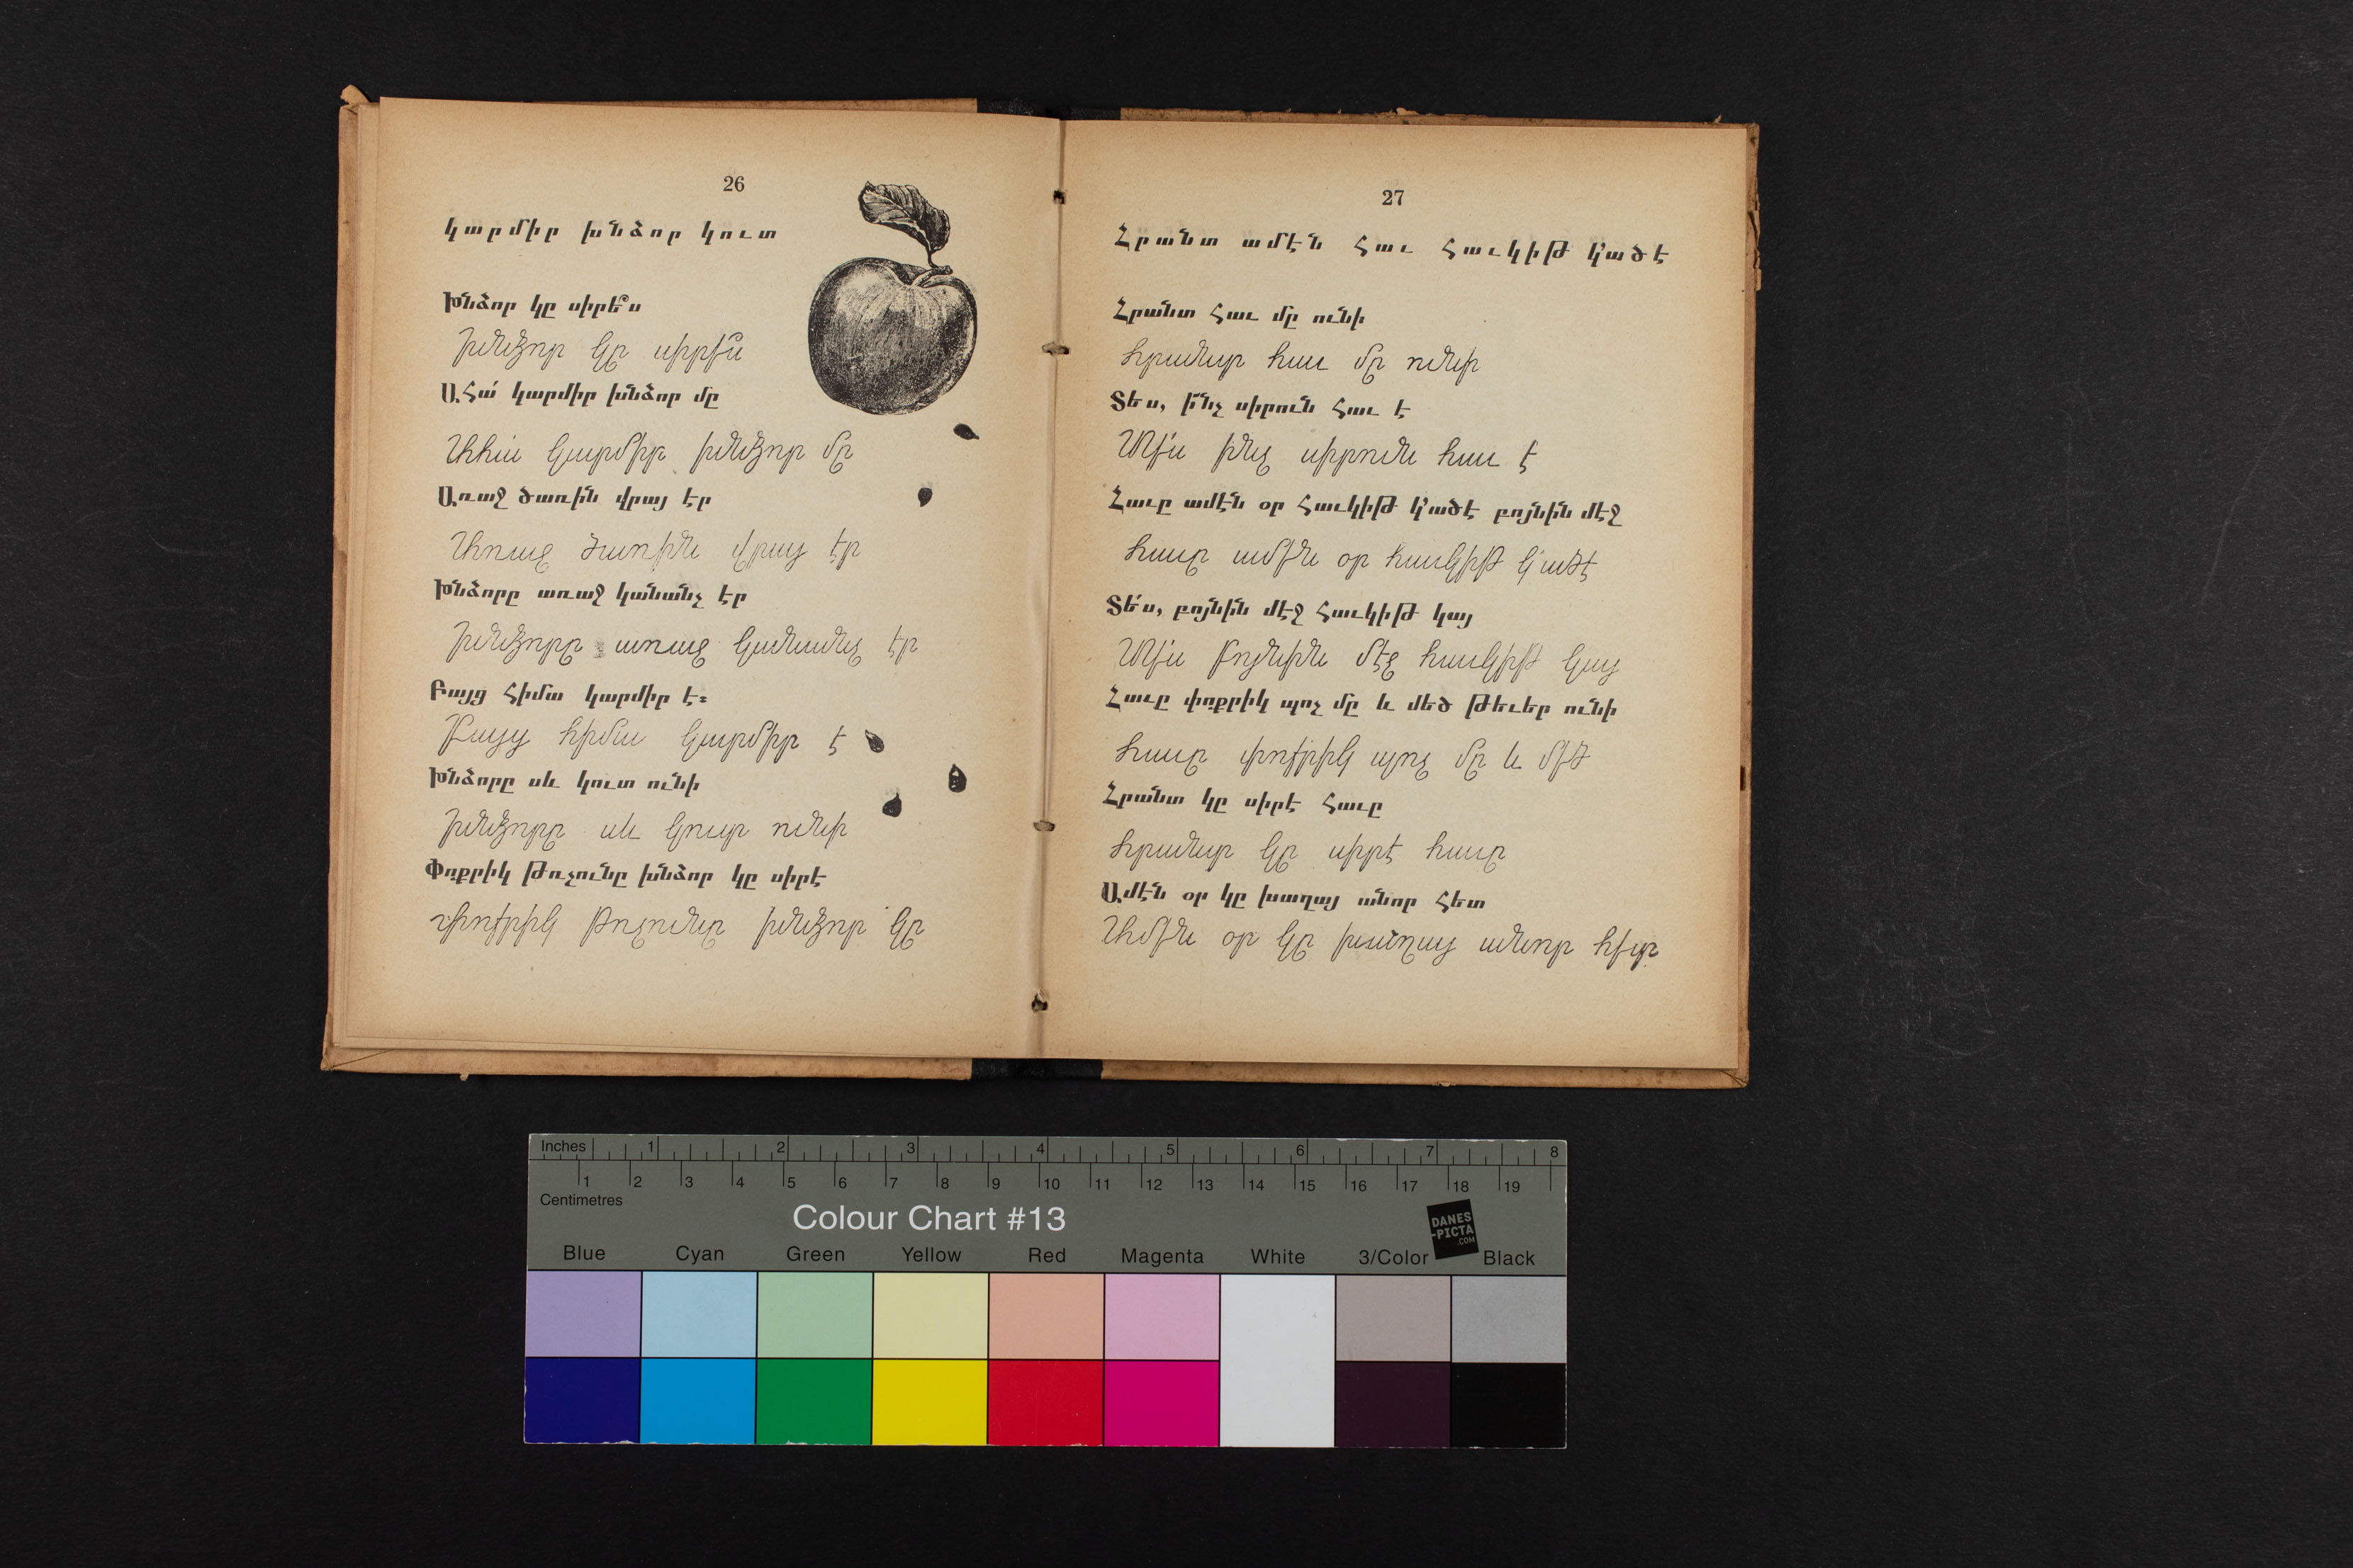 26
կարմիր խնձոր կուտ
Խնձոր կը սիրե՞ս
Խնձոր կը սիրե՞ս
Ահա՛ կարմիր խնձոր մը
Ահա՛ կարմիր խնձոր մը
Առաջ ծառին վրայ էր
Առաջ ծառին վրայ էր
Խնձորը առաջ կանանչ էր
Խնձորը առաջ կանանչ էր
Բայց հիմա կարմիր է։
Բայց հիմա կարմիր է
Խնձորը սև կուտ ունի
Խնձորը սև կուտ ունի
Փոքրիկ թռչունը խնձոր կը սիրէ
Փոքրիկ թռչունը խնձոր կը
27
Հրանտ ամէն հաւ հաւկիթ կ՚ածէ
Հրանտ հաւ մը ունի
Հրանտ հաւ մը ունի
Տես, ի՜նչ սիրուն հաւ է
Տե՛ս ինչ սիրուն հաւ է
Հաւը ամէն օր հաւկիթ կ՚ածէ բոյնին մէջ
Հաւը ամէն օր հաւկիթ կ՚ածէ
Տե՛ս, բոյնին մէջ հաւկիթ կայ
Տե՛ս բոյնին մէջ հաւկիթ կայ
Հաւը փոքրիկ պոչ մը և մեծ թեւեր ունի
Հաւը փոքրիկ պոչ մը և մեծ
Հրանտ կը սիրէ հաւը
Հրանտ կը սիրէ հաւը
Ամէն օր կը խաղայ անոր հետ
Ամէն օր կը խաղայ անոր հետ
Inches 1 2 3 4 5 6 7 8
1 2 3 4 5 6 7 8 9 10 11 12 13 14 15 16 17 18 19
Centimetres
Colour Chart #13
DANES
-PICTA
.COM
Blue Cyan Green Yellow Red Magenta White 3/Color Black